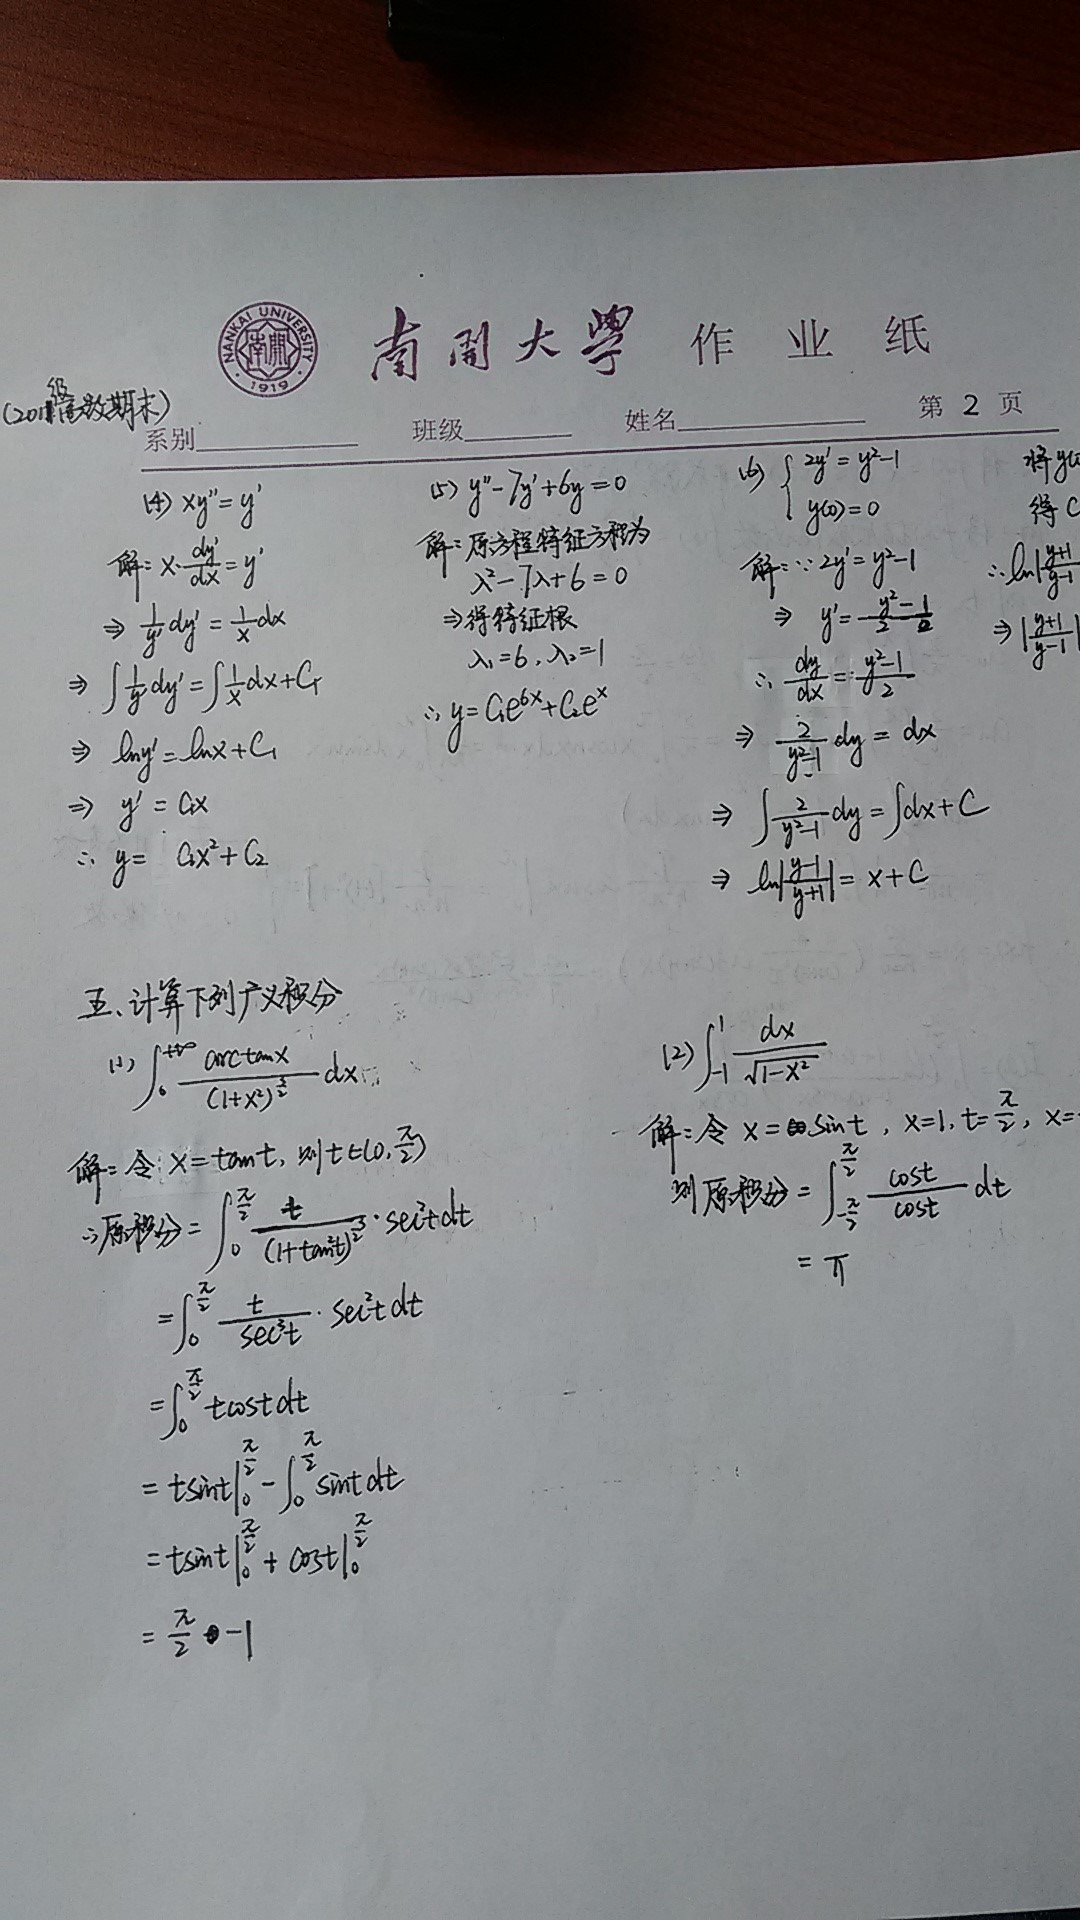 NANKAI UNIVERSITY
南開
1919
南開大學 作业纸
(201 级高数期末)
系别 班级 姓名 第 2 页
(4) xy''=y'
解: x·dy'/dx=y'
⇒ 1/y' dy'=1/x dx
⇒ ∫1/y' dy'=∫1/x dx+C₁
⇒ lny'=lnx+C₁
⇒ y'=C₁x
∴ y= C₁x²+C₂
(5) y''-7y'+6y=0
解: 原方程特征方程为
λ²-7λ+6=0
⇒得特征根
λ₁=6, λ₂=1
∴ y=C₁e^{6x}+C₂e^x
(6) { 2y'=y²-1
y(0)=0
解: ∵ 2y'=y²-1
⇒ y'=
∴ dy/dx=(y²-1)/2
⇒ 2/(y²-1) dy=dx
⇒ ∫2/(y²-1) dy=∫dx+C
⇒ ln|(y-1)/(y+1)|=x+C
将y(0
得C
∴ ln|(y+1)/(y-1)
⇒ |(y+1)/(y-1)|
五、计算下列广义积分
(1) ∫_0^{+∞} arctanx/(1+x²)^{3/2} dx
解: 令 x=tant, 则t∈(0, π/2)
∴原积分=∫_0^{π/2} t/(1+tan²t)^{3/2}·sec²tdt
=∫_0^{π/2} t/sec³t·sec²tdt
=∫_0^{π/2} tcostdt
=tsint|_0^{π/2}-∫_0^{π/2} sintdt
=tsint|_0^{π/2}+cost|_0^{π/2}
=π/2-1
(2) ∫_{-1}^1 dx/√(1-x²)
解: 令 x=sint, x=1, t=π/2, x=-
则原积分=∫_{-π/2}^{π/2} cost/cost dt
=π